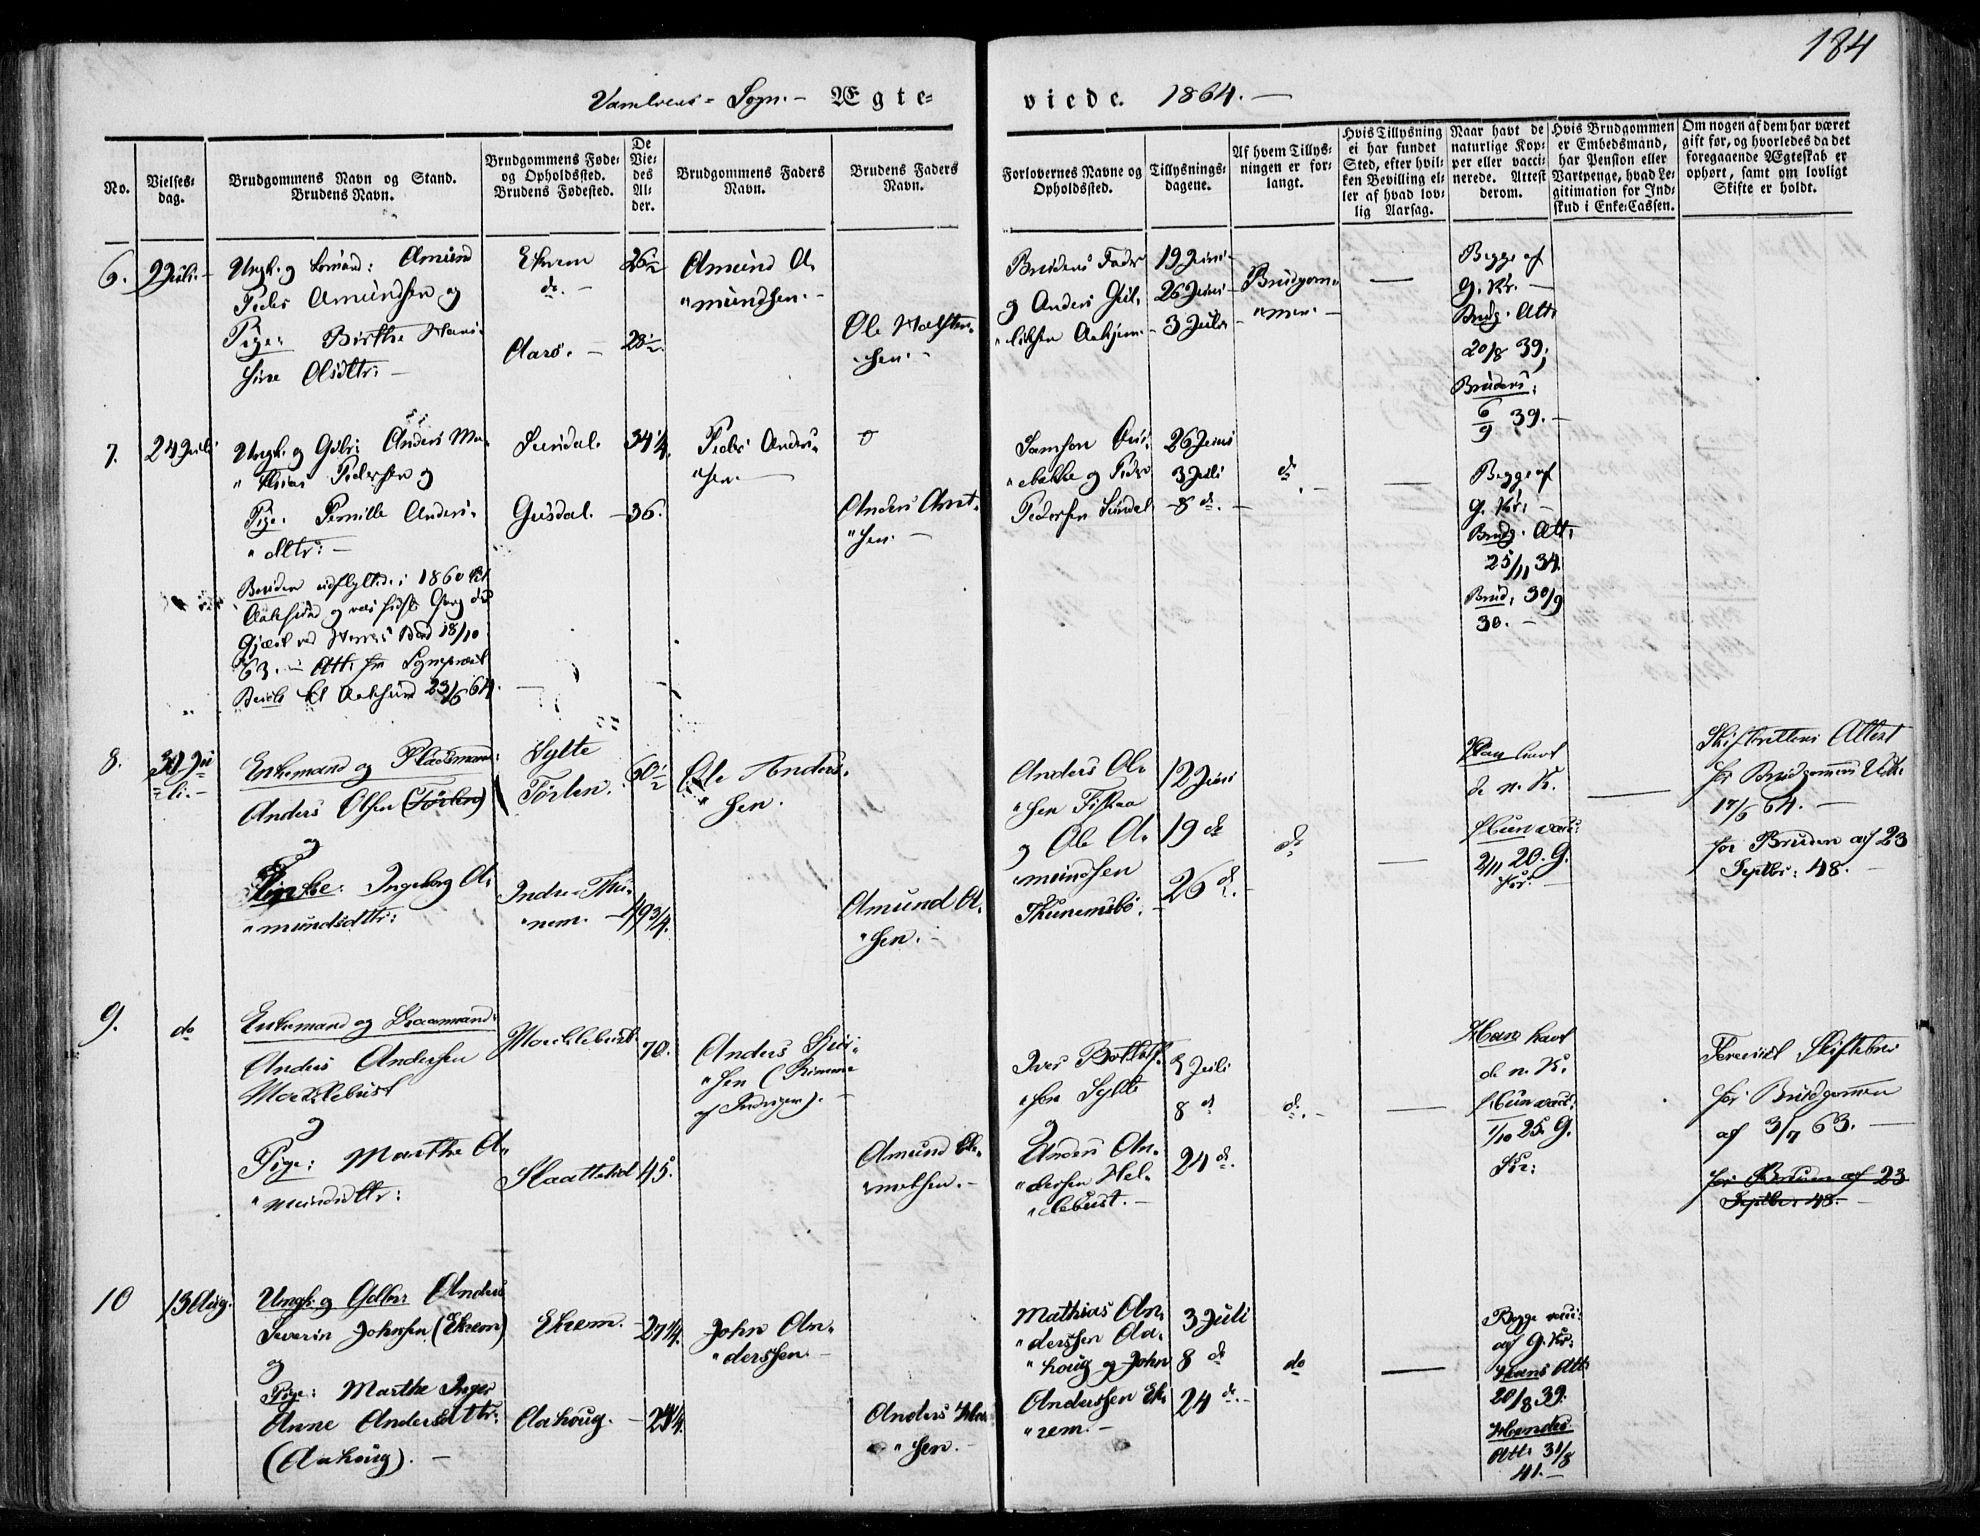 184
Sogn. - Ægte=
viede. 1864. —
No.
Vielses=
dag.
Brudgommens Navn og Stand.
Brudens Navn.
Brudgommens Føde=
og Opholdssted.
Brudens Fødested.
De
Vie=
des
Al=
der.
Brudgommens Faders
Navn.
Brudens Faders
Navn.
Forlovernes Navne og
Opholdssted.
Tillysnings=
dagene.
Af hvem Tillys=
ningen er for=
langt.
Hvis Tillysning
ei har fundet
Sted, efter hvil=
ken Bevilling el=
ler af hvad lov=
lig Aarsag.
Naar havt de
naturlige Kop=
per eller vacci=
nerede. Attest
derom.
Hvis Brudgommen
er Embedsmand,
har Pension eller
Vartpenge, hvad Le=
gitimation for Ind=
skud i Enke=Cassen.
Om nogen af dem har været
gift før, og hvorledes da det
foregaaende Ægteskab er
ophørt, samt om lovligt
Skifte er holdt.
6.
2 Juli. -
Ungk. og Amund
Peder Amundsen og
Pige: Birthe Han=
sine Olsdtr: —
Ekrem
do. -
Aarø. -
26 1/2
28 1/2
Amund A=
"mundsen. -
Ole
sen. -
Brudens Fader
og Anders Gul=
"liksen
19 Juni
26 Juni
3 Juli
Brudgom=
"men. -
—
Begge af
g. Kr. —
Brudg. Att:
20/8 39;
Brudens:
6/9 39. -
7.
24 Juli
Ungk. og Gdbr: Anders Ma=
"thias Pedersen og
Pige: Pernille Anders=
"dtr: —
Bruden udflyttede i 1860 til
og var
Gjæst ved Herrens Bord 18/10
63. — Att: fra Sognepræst
til 23/6 64.
Sundal.
Gusdal. -
34 1/4.
36.
Peder Anders=
"sen. —
Anders Arnt=
"sen. —
Samson
og Peder
Pedersen Sundal
26 Juni
3 Juli
8 do. -
do. -
—
Begge af
g. Kr: —
Brudg. Att:
25/11 34.
Brud: 30/9
30. —
8.
30 Ju=
=li. -
Enkemand og Pladsmand:
Anders Olsen (Tørlen)
og
Enke: Ingeborg A=
"mundsdtr:
Sylte
Tørlen.
Indre=Thu=
"nem. —
60 1/2
49 3/4.
Ole Anders=
sen.
Amund A=
"sen. -
Anders Ol=
"sen Fiskaa
og Ole A=
mundsen
Thunemsbø. -
12 Juni
19 do
26 do. -
do
—
Han havt
de n. K.
Hun vacc:
2/11 20. G.
Kr: -
—
Skifterettens Attest
for Brudgommens Vedk.
17/6 64. —
for Bruden af 23
Septbr: 48. -
9.
do
Enkemand og
Anders Andersen
Moeklebust
og
Pige: Marthe A=
"mundsdtr:
Moeklebust
Slaattelid
70.
45.
Anders
"sen
Amund
Iver
"sen Sylte
og
Anders An=
"dersen Hel=
"lebust. -
3 Juli
8 do
24 do.
do. -
—
Han havt
de n. K.
Hun vacc:
1/10 25. G.
Kr:
Skiftebrev
for Brudgommen
af 3/7 63. —
for Bruden af 23
Septbr: 48. -
10
13 Aug.
Ungk. og Gdbr: Anders
Severin Johnsen (Ekrem)
og
Pige: Marthe Inger
Anne Andersdtr:
(Aahoug). —
Ekrem. -
Aahoug. -
27 1/4.
23 1/4.
John An=
"derssen. -
Anders
"sen. -
Mathias An=
"derssen Aa=
"houg og John
Anderssen Ek=
"rem. -
3 Juli
8 do
24 do. -
do
—
Begge vacc:
af G. Kr:
Hans Att:
20/8 39.
Hendes
Att: 31/8
41. -